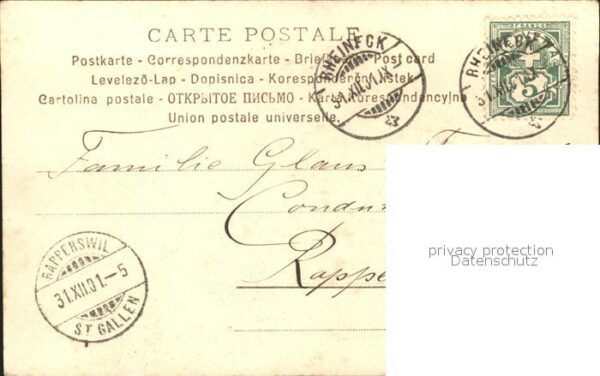 CARTE POSTALE
Postkarte - Correspondenzkarte - Brief Post card
Levelező-Lap - Dopisnica - Korespondenční lístek
Cartolina postale - ОТКРЫТОЕ ПИСЬМО - Karta korespondencyjna
Union postale universelle.
RHEINECK
31.XII.01
RHEINECK
FRANCO
5
Familie Glaus
Condu
Rappe
RAPPERSWIL
31.XII.01.-5
ST GALLEN
privacy protection
Datenschutz